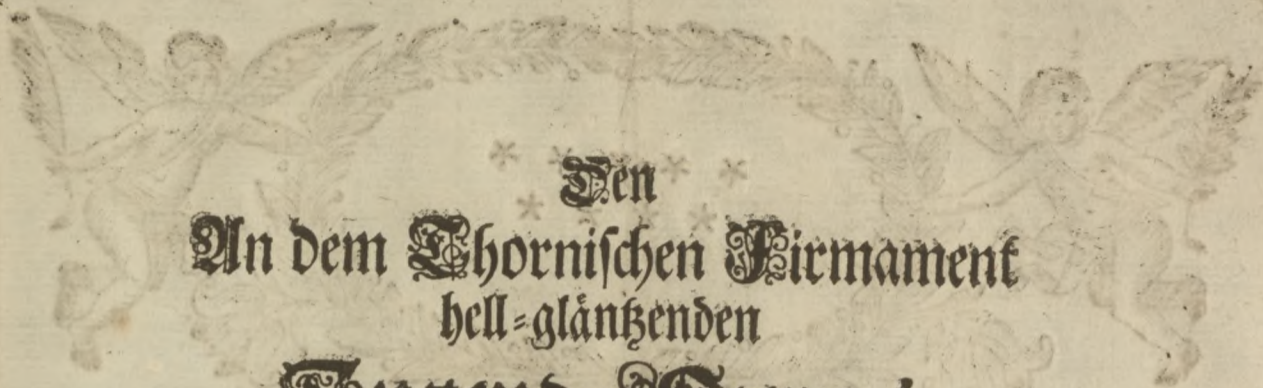 Den
An dem Thornischen Firmament
hell-gläntzenden